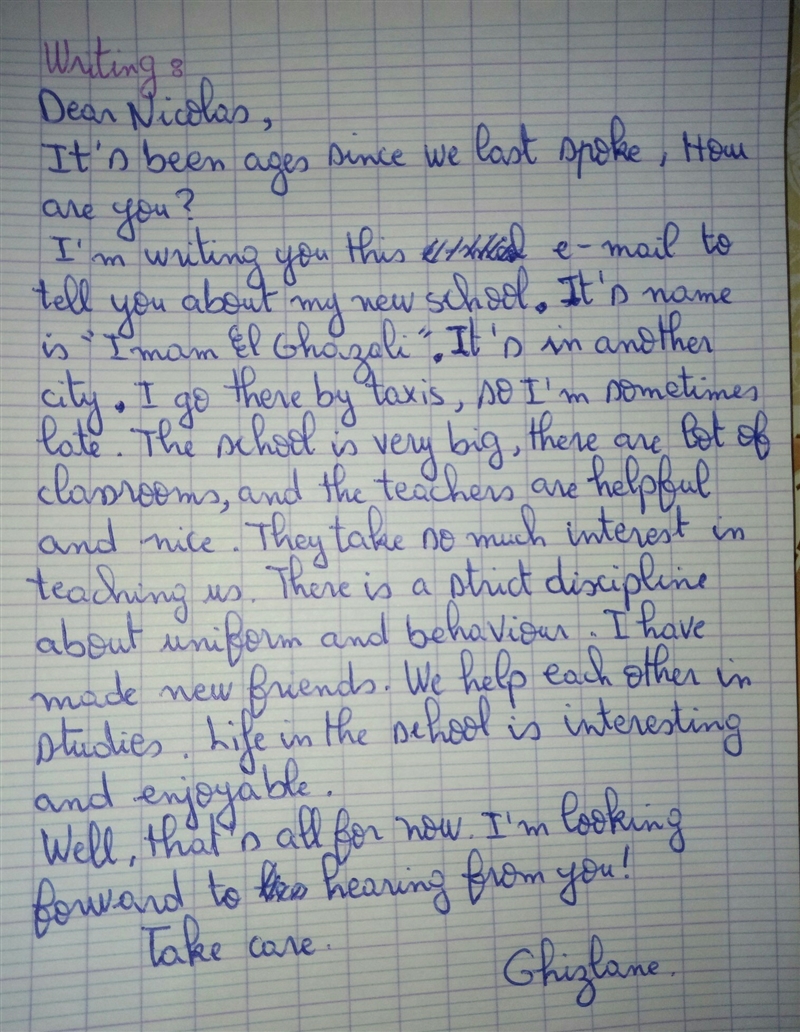 Writing :
Dear Nicolas,
It's been ages since we last spoke, How
are you?
I'm writing you this e-mail to
tell you about my new school. It's name
is "Imam El Ghazali". It's in another
city. I go there by taxis, so I'm sometimes
late. The school is very big, there are lot of
classrooms, and the teachers are helpful
and nice. They take so much interest in
teaching us. There is a strict discipline
about uniform and behaviour. I have
made new friends. We help each other in
studies. Life in the school is interesting
and enjoyable.
Well, that's all for now. I'm looking
forward to hearing from you!
Take care.
Ghizlane.